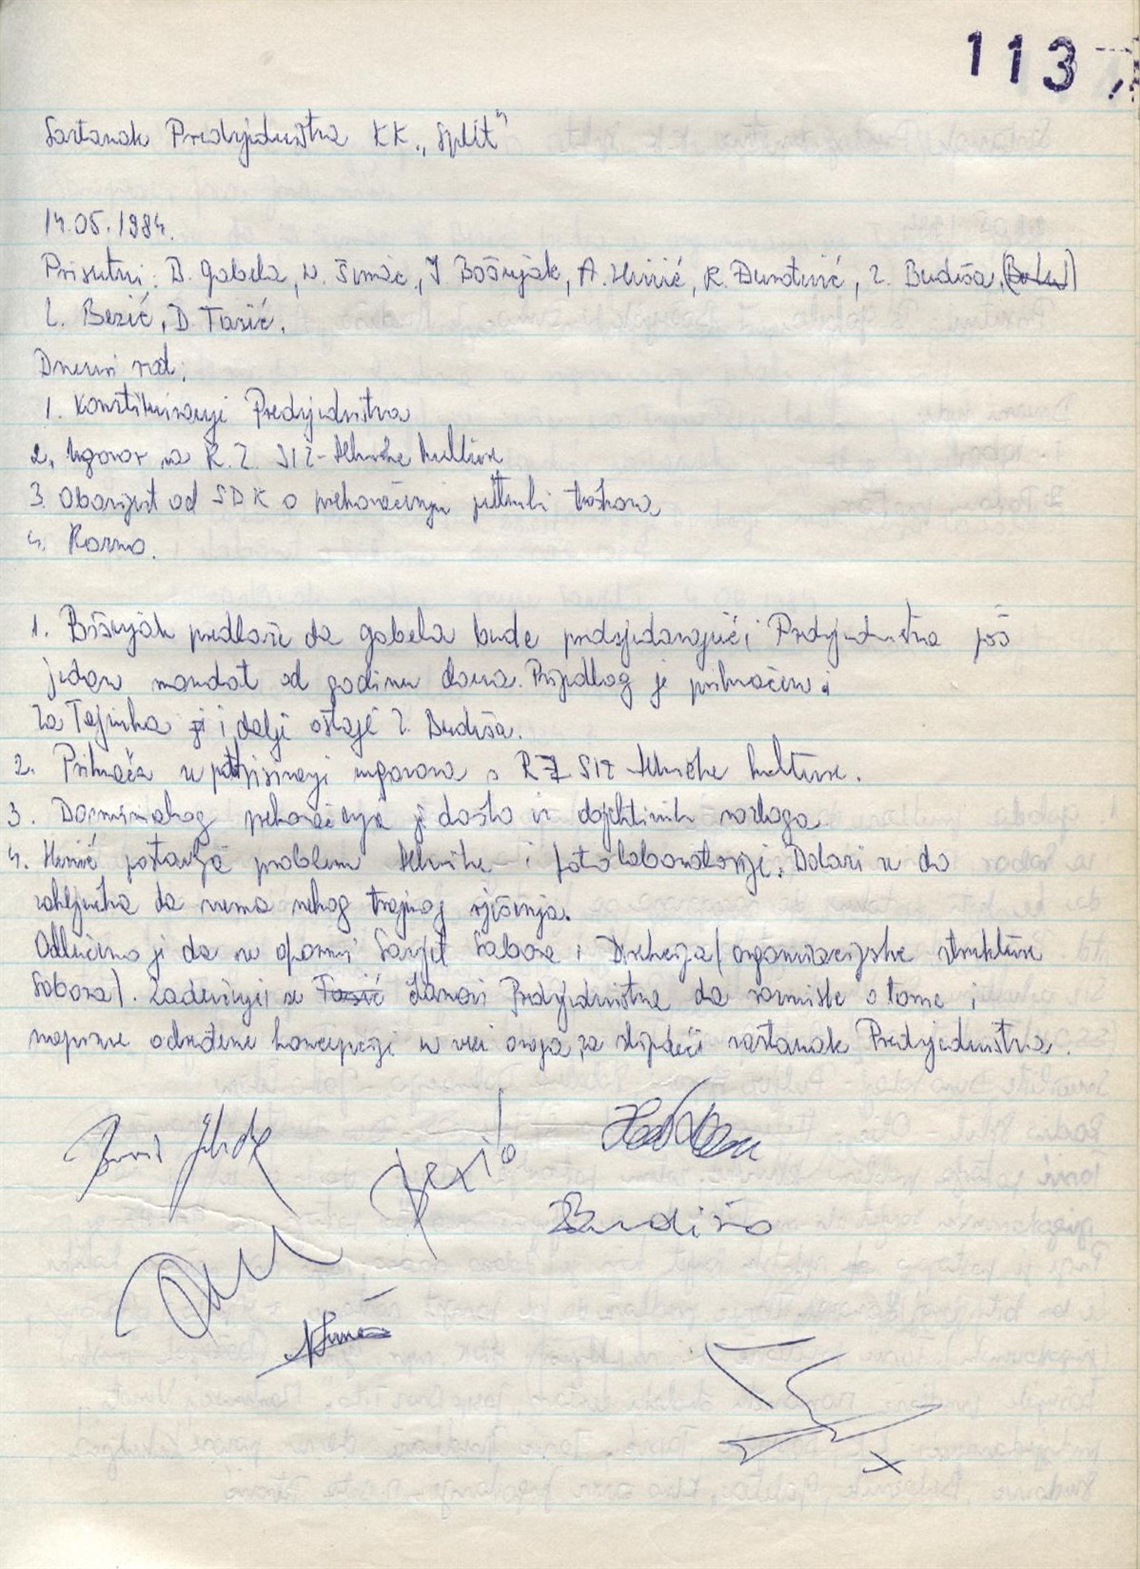 113
Sastanak Predsjedništva KK „Split"
14.05.1984.
Prisutni: B. Gabela, N. Šimac, J. Bošnjak, A. Hinić, R. Đurotinić, Z. Budiša,
L. Bezić, D. Tasić.
Dnevni red:
1. Konstituiranje Predsjedništva
2. Ugovor sa R.Z. SIZ-tehničke kulture
3. Obavijest od SDK o prekoračenju troškova
4. Razno.
1. Bošnjak predlaže da Gabela bude predsjedavajući Predsjedništva još
jedan mandat od godinu dana. Prijedlog je prihvaćen i
za Tajnika i dalje ostaje Z. Budiša.
2. Prihvaća se potpisivanje ugovora s RZ SIZ tehničke kulture.
3. Do prekoračenja je došlo iz objektivnih razloga
4. Hinić postavlja problem tehnike i fotolaboratorije. Dolazi se do
zaključka da nema nekog trajnog rješenja.
Odlučeno je da se oformi Savjet Sabora i Direkcija (organizacijske strukture
Sabora). Zadužuju se Tasić članovi Predsjedništva da razmisle o tome i
naprave određene koncepcije u vezi ovoga za slijedeći sastanak Predsjedništva.
Bezić
Budiša
NŠimac